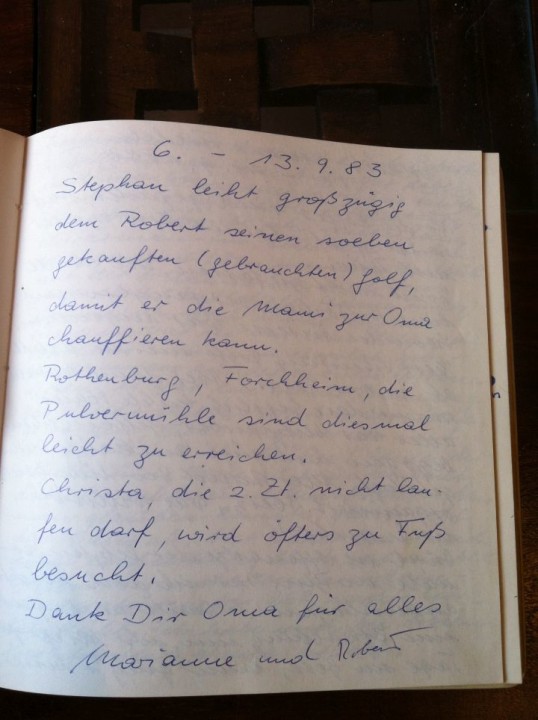 6. - 13.9.83
Stephan leiht großzügig
dem Robert seinen soeben
gekauften (gebrauchten) Golf,
damit er die Mami zur Oma
chauffieren kann.
Rothenburg, Forchheim, die
Pulvermühle sind diesmal
leicht zu erreichen.
Christa, die z. Zt. nicht lau-
fen darf, wird öfters zu Fuß
besucht.
Dank Dir Oma für alles
Marianne und Robert